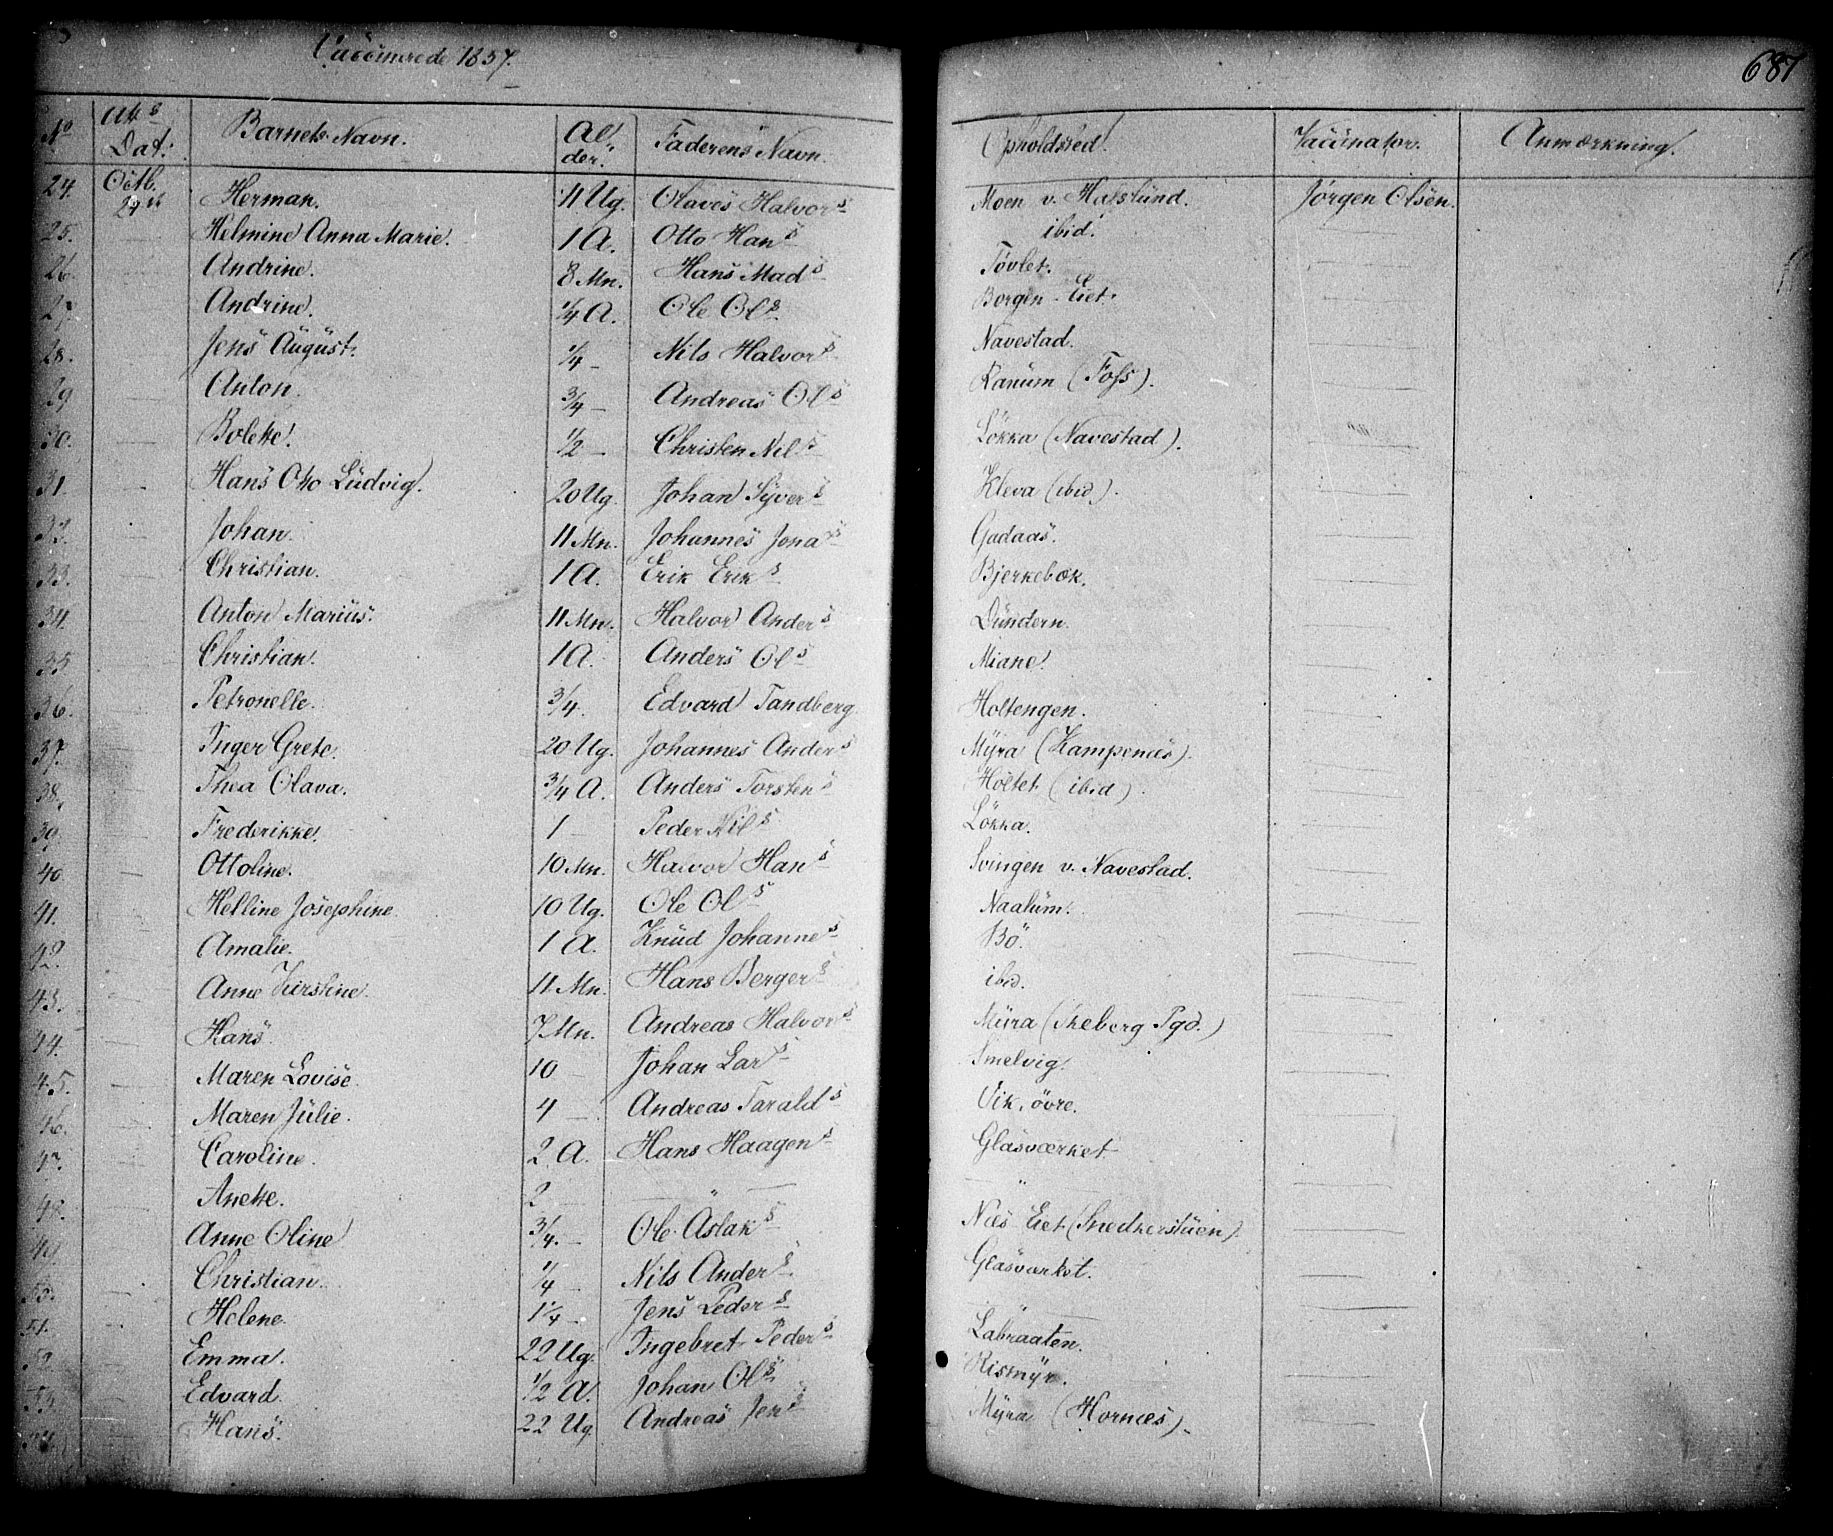 Vaccinerede 1857.
687
No Aks Dat: Barnets Navn. Alder. Faderens Navn. Opholdsted. Vaccinator. Anmærkning.
24. Octb. 24de Herman. 11 Ug. Olaves Halvors Moen v. Hafslund. Jörgen Olsen.
25. Helmine Anna Marie. 1 A. Otto Hans ibid.
26. Andrine. 8 Mn. Hans Mads Tövlet.
27. Andrine. 1/4 A. Ole Ols Borgen-Eiet.
28. Jens August. 1/4 - Nils Halvors Navestad.
29 Anton. 3/4 - Andreas Ols Kanum (Foss).
30. Bolette. 1/2 - Christen Nils Lökka (Navestad).
31. Hans Otto Ludvig. 20 Ug. Johan Syvers Kleva (ibid).
32. Johan. 11 Mn. Johannes Jonas Gadaas.
33. Christian. 1 A. Erik Eriks Bjerkebæk.
34. Anton Marius. 11 Mn. Halvor Anders Dundern.
35 Christian. 1 A. Anders Ols Miane.
36. Petronelle. 3/4. Edvard Tandberg Holtengen.
37. Inger Grete. 20 Ug. Johannes Anders Myra (Kampenæs).
38. Thea Olava. 3/4 A. Anders Torstens Holtet (ibid).
39. Frederikke. 1 - Peder Nils Lökka.
40 Ottoline. 10 Mn. Halvor Hans Svingen v. Navestad.
41. Helline Josephine 10 Ug. Ole Ols Naalum.
42. Amalie. 1 A. Knud Johannes Bö.
43. Anne Kirstine. 11 Mn. Hans Bergers ibid.
44. Hans. 7 Mn. Andreas Halvors Myra (Skeberg Pgd.)
45. Maren Lovise. 10 - Johan Lars Smelvig.
46. Maren Julie. 4 - Andreas Taralds Vik, övre.
47. Caroline. 2 A. Hans Haagens Glasværket.
48. Anette. 2 - " "
49. Anne Oline 3/4. - Ole Aslaks Næs Eiet (Snedkerstuen).
50. Christian. 1/4 - Nils Anders Glasværket.
51. Helene. 1 1/4 - Jens Peders
52 Emma. 22 Ug. Ingebret Peders Labraaten.
53. Edvard. 1/2 A. Johan Ols Rismyr.
54. Hans. 22 Ug. Andreas Jens Myra (Hornæs).